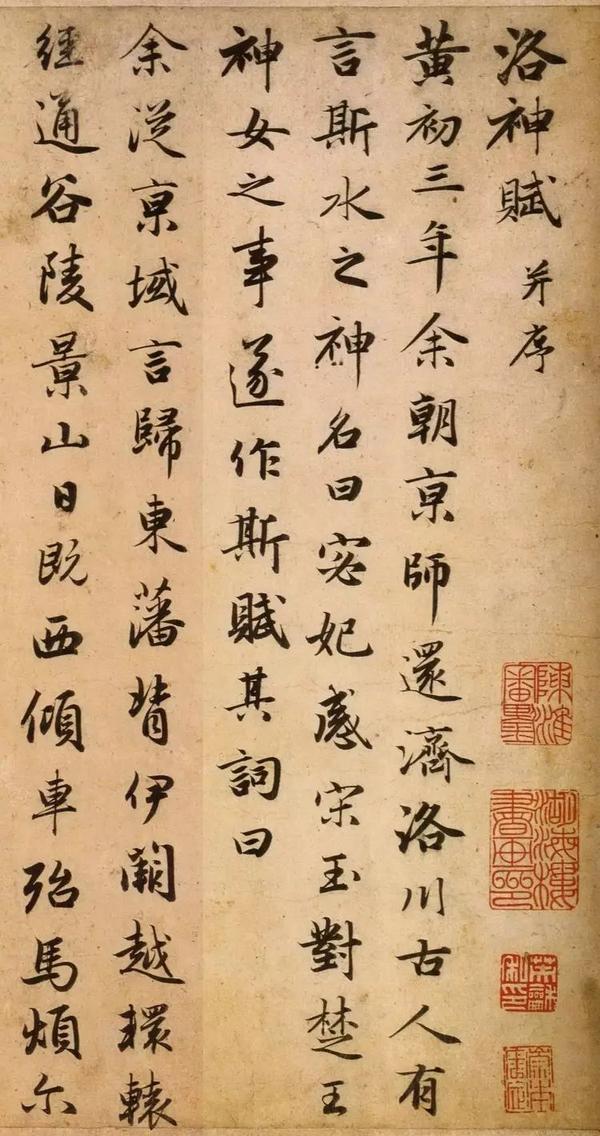 洛神賦 并序
黃初三年余朝京師還濟洛川古人有
言斯水之神名曰宓妃感宋玉對楚王
神女之事遂作斯賦其詞曰
余從京域言歸東藩背伊闕越轘轅
經通谷陵景山日既西傾車殆馬煩尔